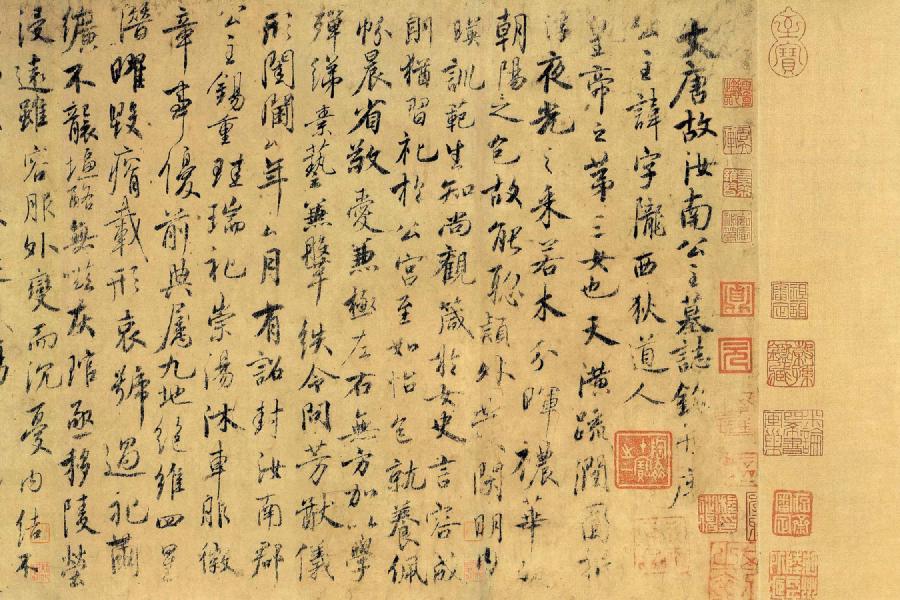 大唐故汝南公主墓誌銘并序
公主諱字隴西狄道人
皇帝之第三女也天潢疏潤圓折
浮夜光之采若木分暉穠華照
朝陽之色故能聡穎外發閑明內
暎訓範生知尚觀箴於女史言容成
則猶習礼於公宮至如怡色就養佩
帉晨省敬愛兼極左右無方加以學
殫綈素藝兼鞶紩令問芳猷儀
形閨閫厶年厶月有詔封汝南郡
公主錫重珪瑞礼崇湯沐車服徽
章事優前典屬九地絕維四星
潛曜毀瘠載形哀號過礼繭
纊不襲塩酪無嗞灰琯亟移陵塋
浸遠雖容服外變而沉憂內結不